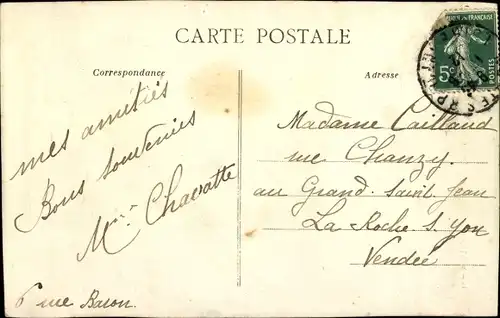 CARTE POSTALE
Correspondance
Adresse
mes amitiés
Bons souvenirs
Mme Chavatte
6 rue Baron.
Madame Caillaud
rue Chanzy.
au Grand Saint Jean
La Roche S. Yon
Vendée
5
POSTES